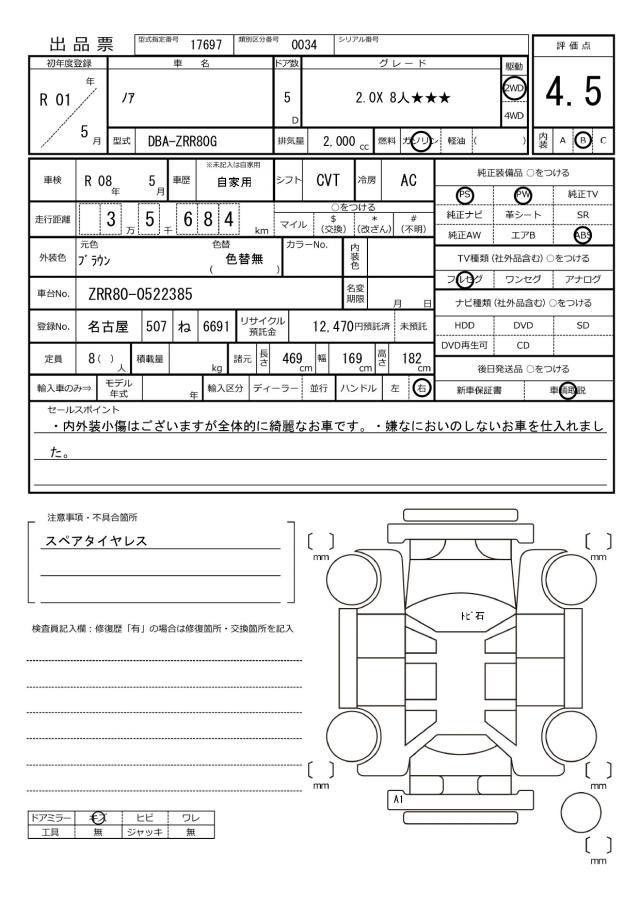 出品票 型式指定番号 17697 類別区分番号 0034 シリアル番号
評価点
4.5
内装 A B C
初年度登録 車名 ドア数 グレード 駆動
R 01 年 5 月 ノア 5 D 2.0X 8人★★★ 2WD 4WD
型式 DBA-ZRR80G 排気量 2,000 cc 燃料 ガソリン 軽油 ( )
車検 R 08 年 5 月 車歴 ※未記入は自家用 自家用 シフト CVT 冷房 AC
走行距離 3 万 5 千 6 8 4 km
○をつける
マイル $ (交換) * (改ざん) # (不明)
外装色 元色 ブラウン 色替 ( 色替無 ) カラーNo. 内装色
車台No. ZRR80-0522385 名変期限 月 日
登録No. 名古屋 507 ね 6691 リサイクル預託金 12,470円預託済 未預託
定員 8( )人 積載量 kg 諸元 長さ 469 cm 幅 169 cm 高さ 182 cm
輸入車のみ⇒ モデル年式 年 輸入区分 ディーラー 並行 ハンドル 左 右
純正装備品 ○をつける
PS PW 純正TV
純正ナビ 革シート SR
純正AW エアB ABS
TV種類(社外品含む)○をつける
フルセグ ワンセグ アナログ
ナビ種類(社外品含む)○をつける
HDD DVD SD
DVD再生可 CD
後日発送品 ○をつける
新車保証書 車輌取説
セールスポイント
・内外装小傷はございますが全体的に綺麗なお車です。・嫌なにおいのしないお車を仕入れまし
た。
注意事項・不具合箇所
スペアタイヤレス
検査員記入欄:修復歴「有」の場合は修復箇所・交換箇所を記入
ドアミラー キズ ヒビ ワレ
工具 無 ジャッキ 無
〔 〕mm
〔 〕mm
トビ石
〔 〕mm
〔 〕mm
A1
〔 〕mm